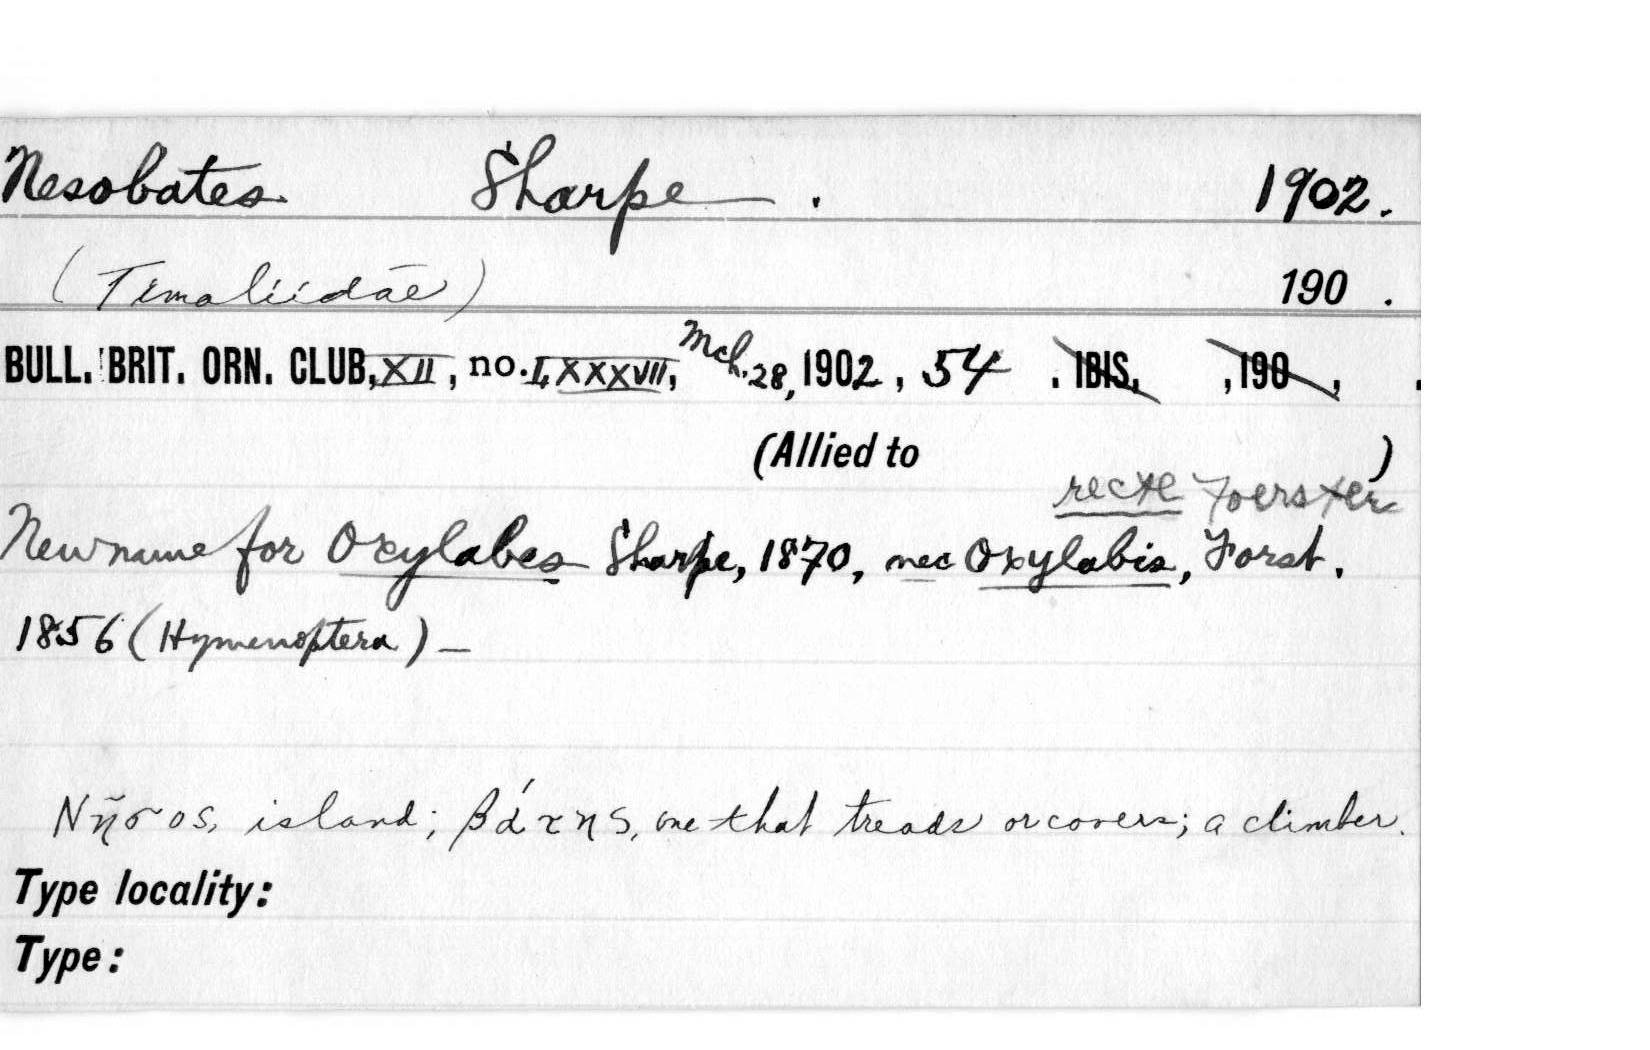 Nesobates Sharpe . 1902.
(Timaliidae) 190 .
BULL. BRIT. ORN. CLUB, XII, no. LXXXVII, Mch. 28, 1902, 54 . IBIS, , 190 , .
(Allied to )
recte Foerster
New name for Oxylabes Sharpe, 1870, nec Oxylabis, Forst.
1856 (Hymenoptera) —
Νῆσος, island; βάτης, one that treads or covers; a climber.
Type locality:
Type: